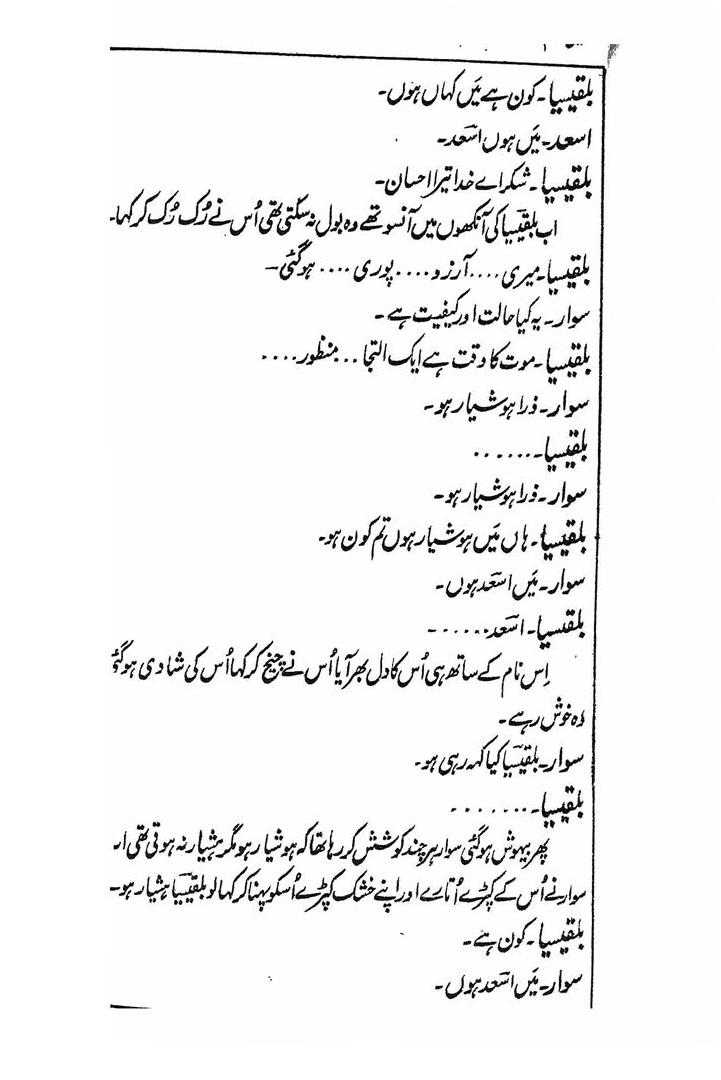 بلقیسیا۔ کون ہے مَیں کہاں ہوں۔
اسعد۔ مَیں ہوں اسؔعد۔
بلقیسیا۔ شکر اے خدا تیرا احسان۔
اب بلقیؔسیا کی آنکھوں میں آنسو تھے وہ بول نہ سکتی تھی اُس نے رُک رُک کر کہا۔
بلقیسیا۔ میری .... آرزو .... پوری .... ہو گئی۔
سوار۔ یہ کیا حالت اور کیفیت ہے۔
بلقیسیا۔ موت کا وقت ہے ایک التجا .. منظور ....
سوار۔ ذرا ہوشیار ہو۔
بلقیسیا۔ ......
سوار۔ ذرا ہوشیار ہو۔
بلقیسیا۔ ہاں مَیں ہوشیار ہوں تم کون ہو۔
سوار۔ مَیں اسؔعد ہوں۔
بلقیسیا۔ اسؔعد ......
اِس نام کے ساتھ ہی اُس کا دل بھر آیا اُس نے چیخ کر کہا اُس کی شادی ہو گئی
وہ خوش رہے۔
سوار۔ بلقیؔسیا کیا کہہ رہی ہو۔
بلقیسیا۔ .......
پھر بیہوش ہو گئی سوار ہر چند کوشش کر رہا تھا کہ ہوشیار ہو مگر ہشیار نہ ہوتی تھی
سوار نے اُس کے کپڑے اُتارے اور اپنے خشک کپڑے اُسکو پہنا کر کہا لو بلقیؔسیا ہشیار ہو۔
بلقیسیا۔ کون ہے۔
سوار۔ مَیں اسؔعد ہوں۔